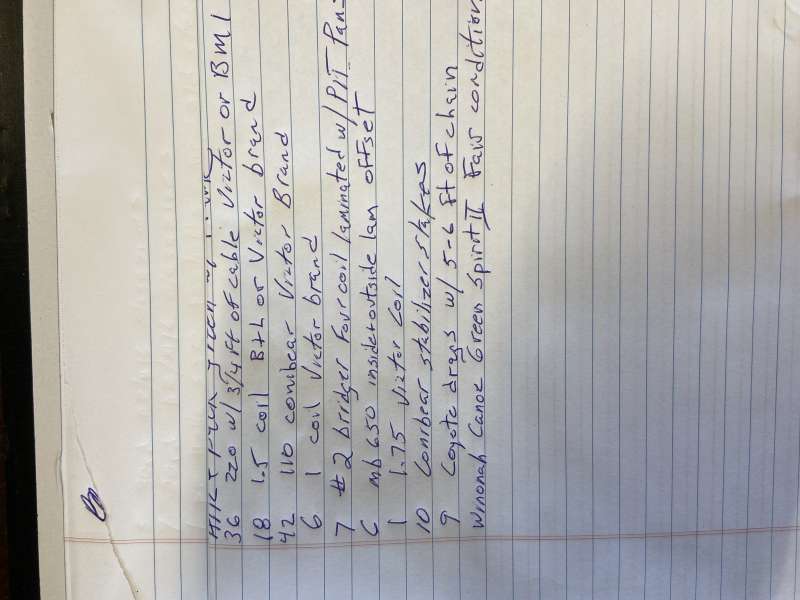 36 220 w/ 3/4 ft of cable Victor or BMI
18 1.5 coil B+L or Victor brand
42 110 conibear Victor Brand
6 1 coil Victor brand
7 #2 bridger Four coil laminated w/ PIT Pan-
6 mb 650 inside+outside lam offset
1 1.75 Victor Coil
10 Conibear stabilizer stakes
9 Coyote drags w/ 5-6 ft of chain
Winonah Canoe Green Spirit II Fair condition.